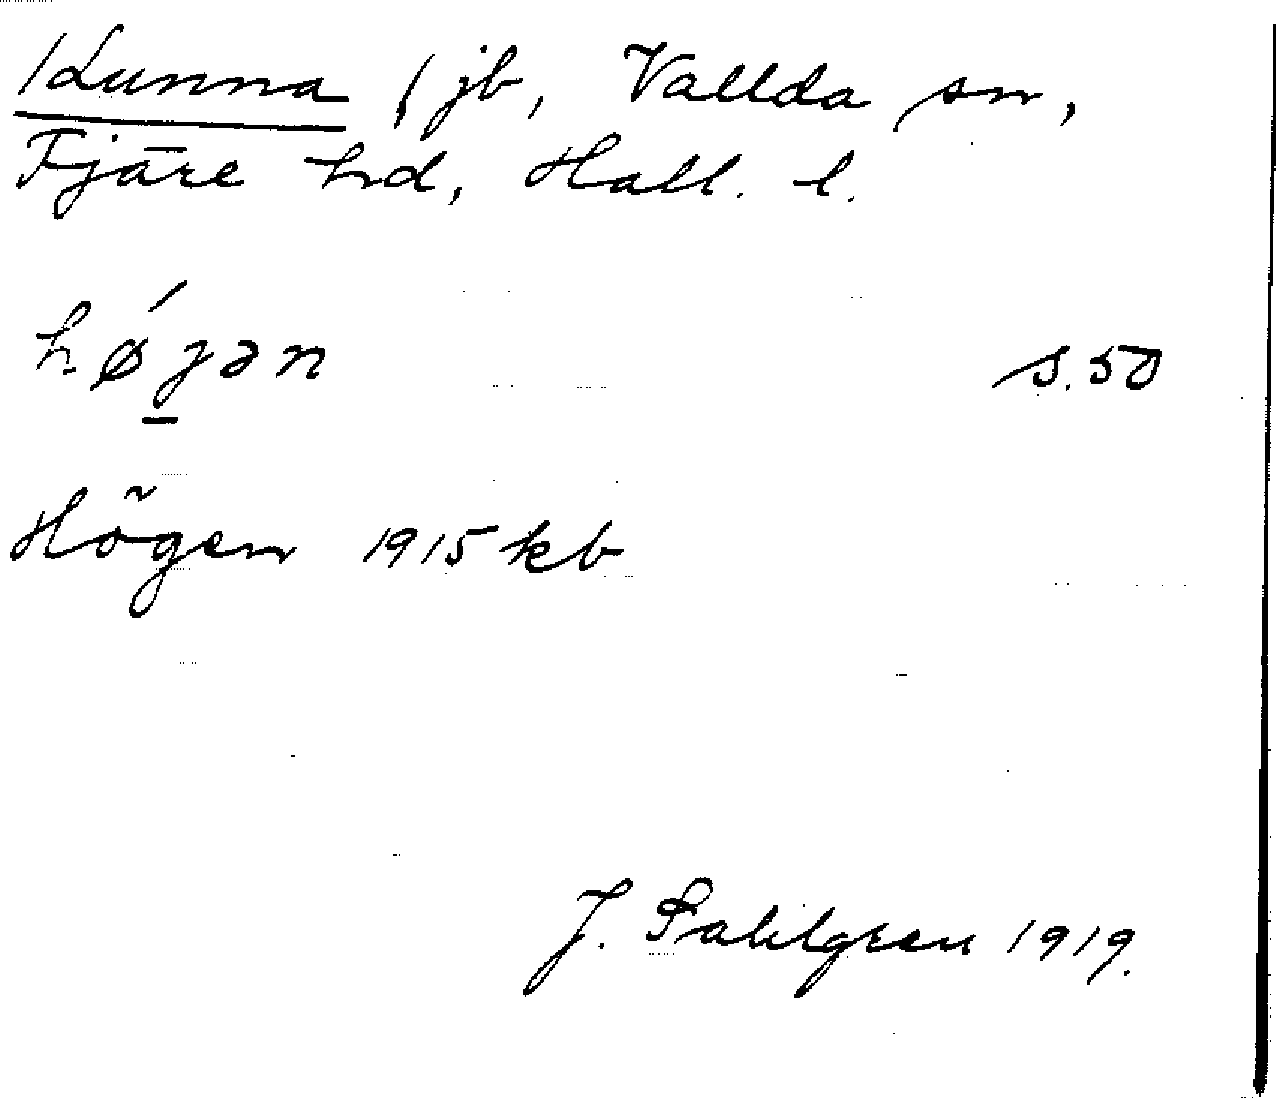 /Lunna / jb, Vallda sn,
Fjäre hd, Hall. l.
hǿjən s. 50
Högen 1915 kb
J. Sahlgren 1919.